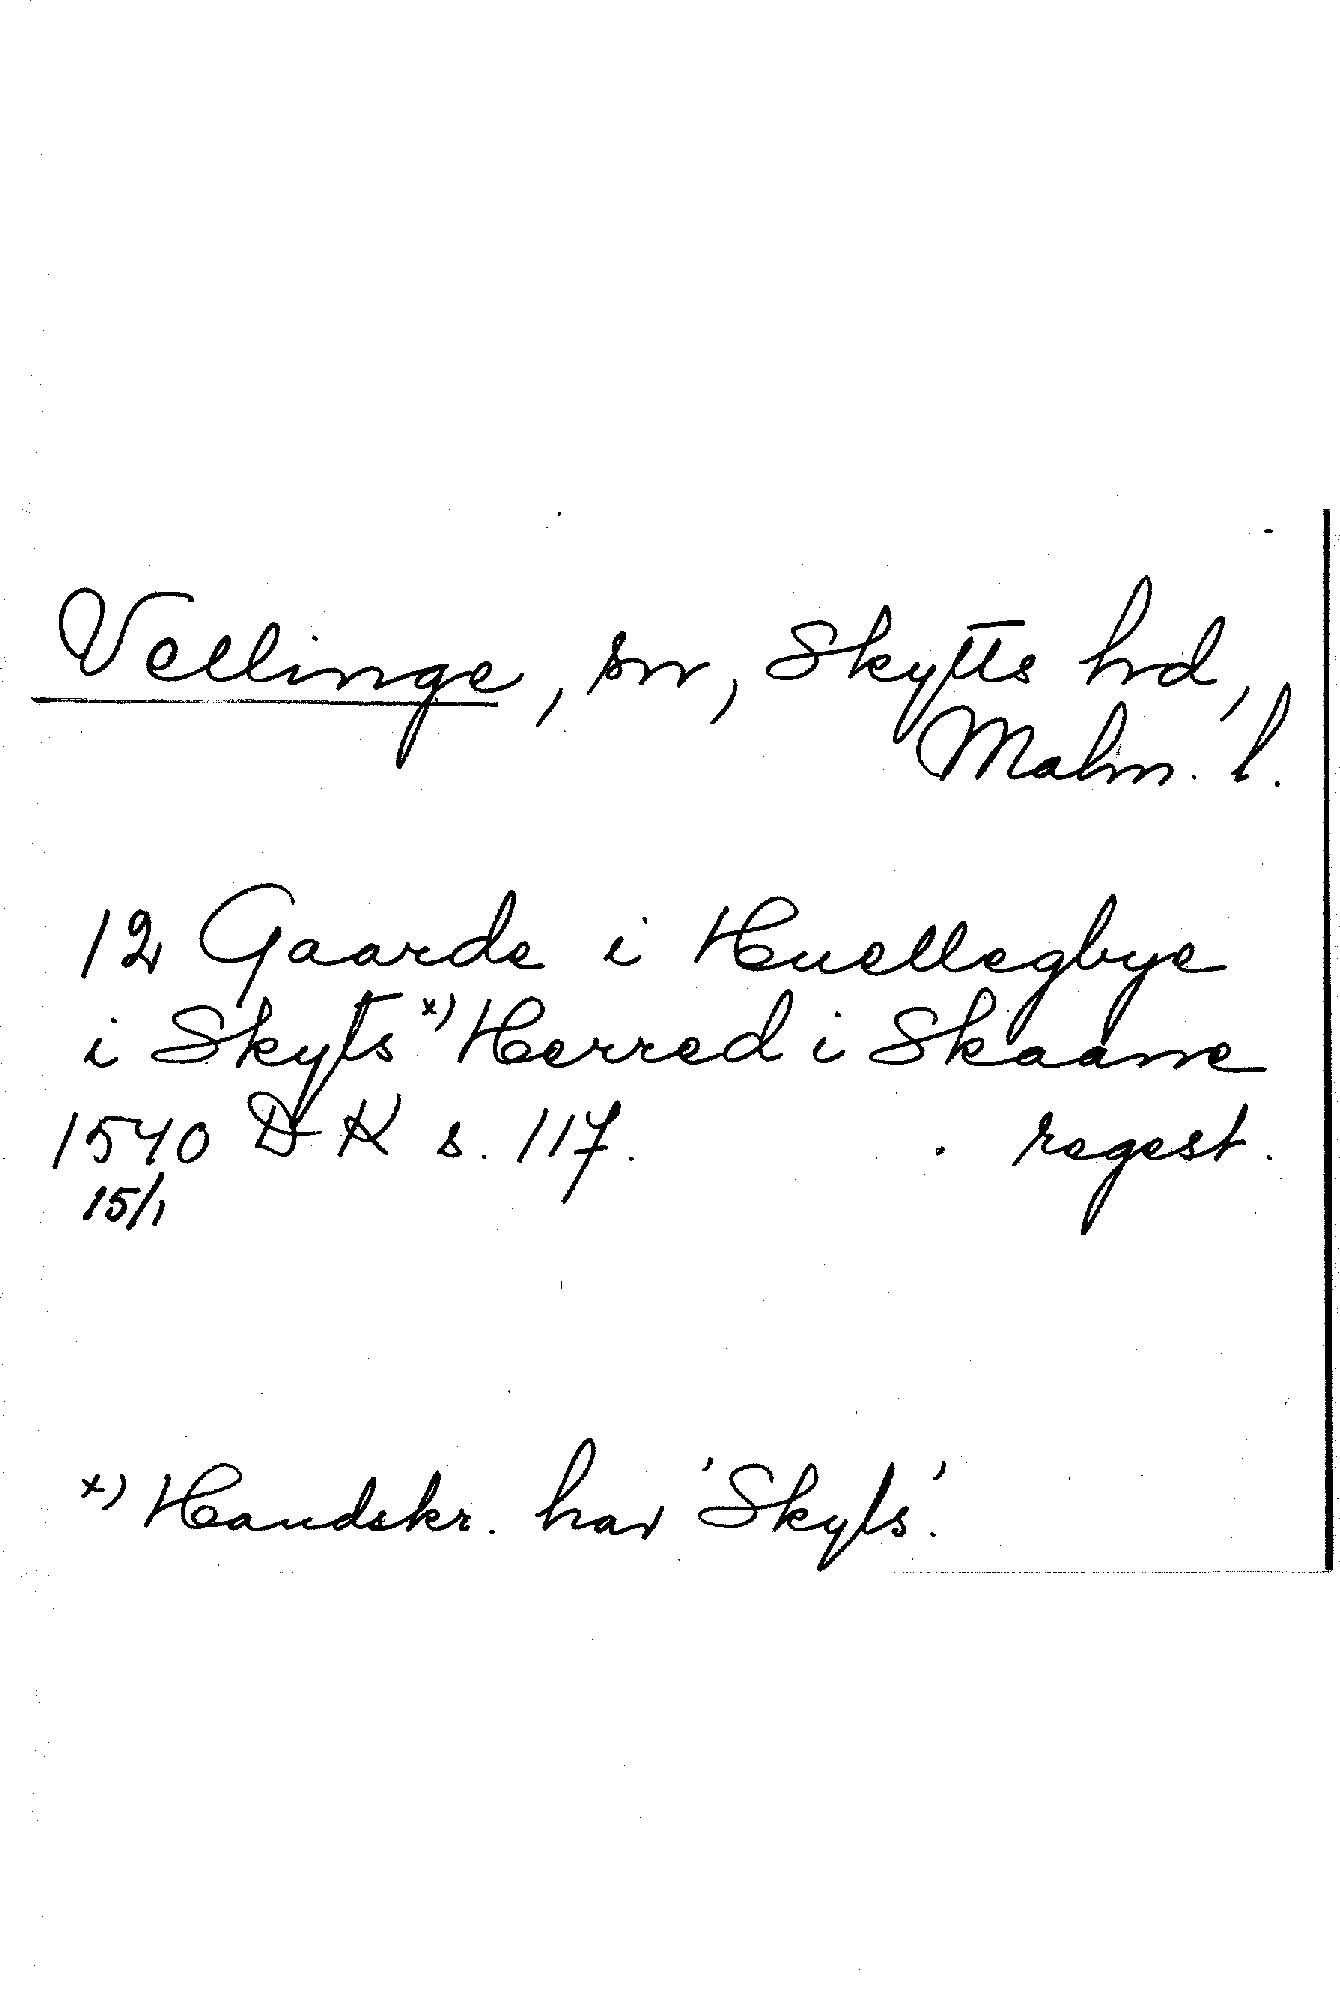 Vellinge, sn, Skytts hd,
Malm. l.
12 Gaarde i Huellegbye
i Skyts *) Herred i Skaane
1540 DK s. 117. regest.
15/1
*) Handskr. har 'Skyls'.